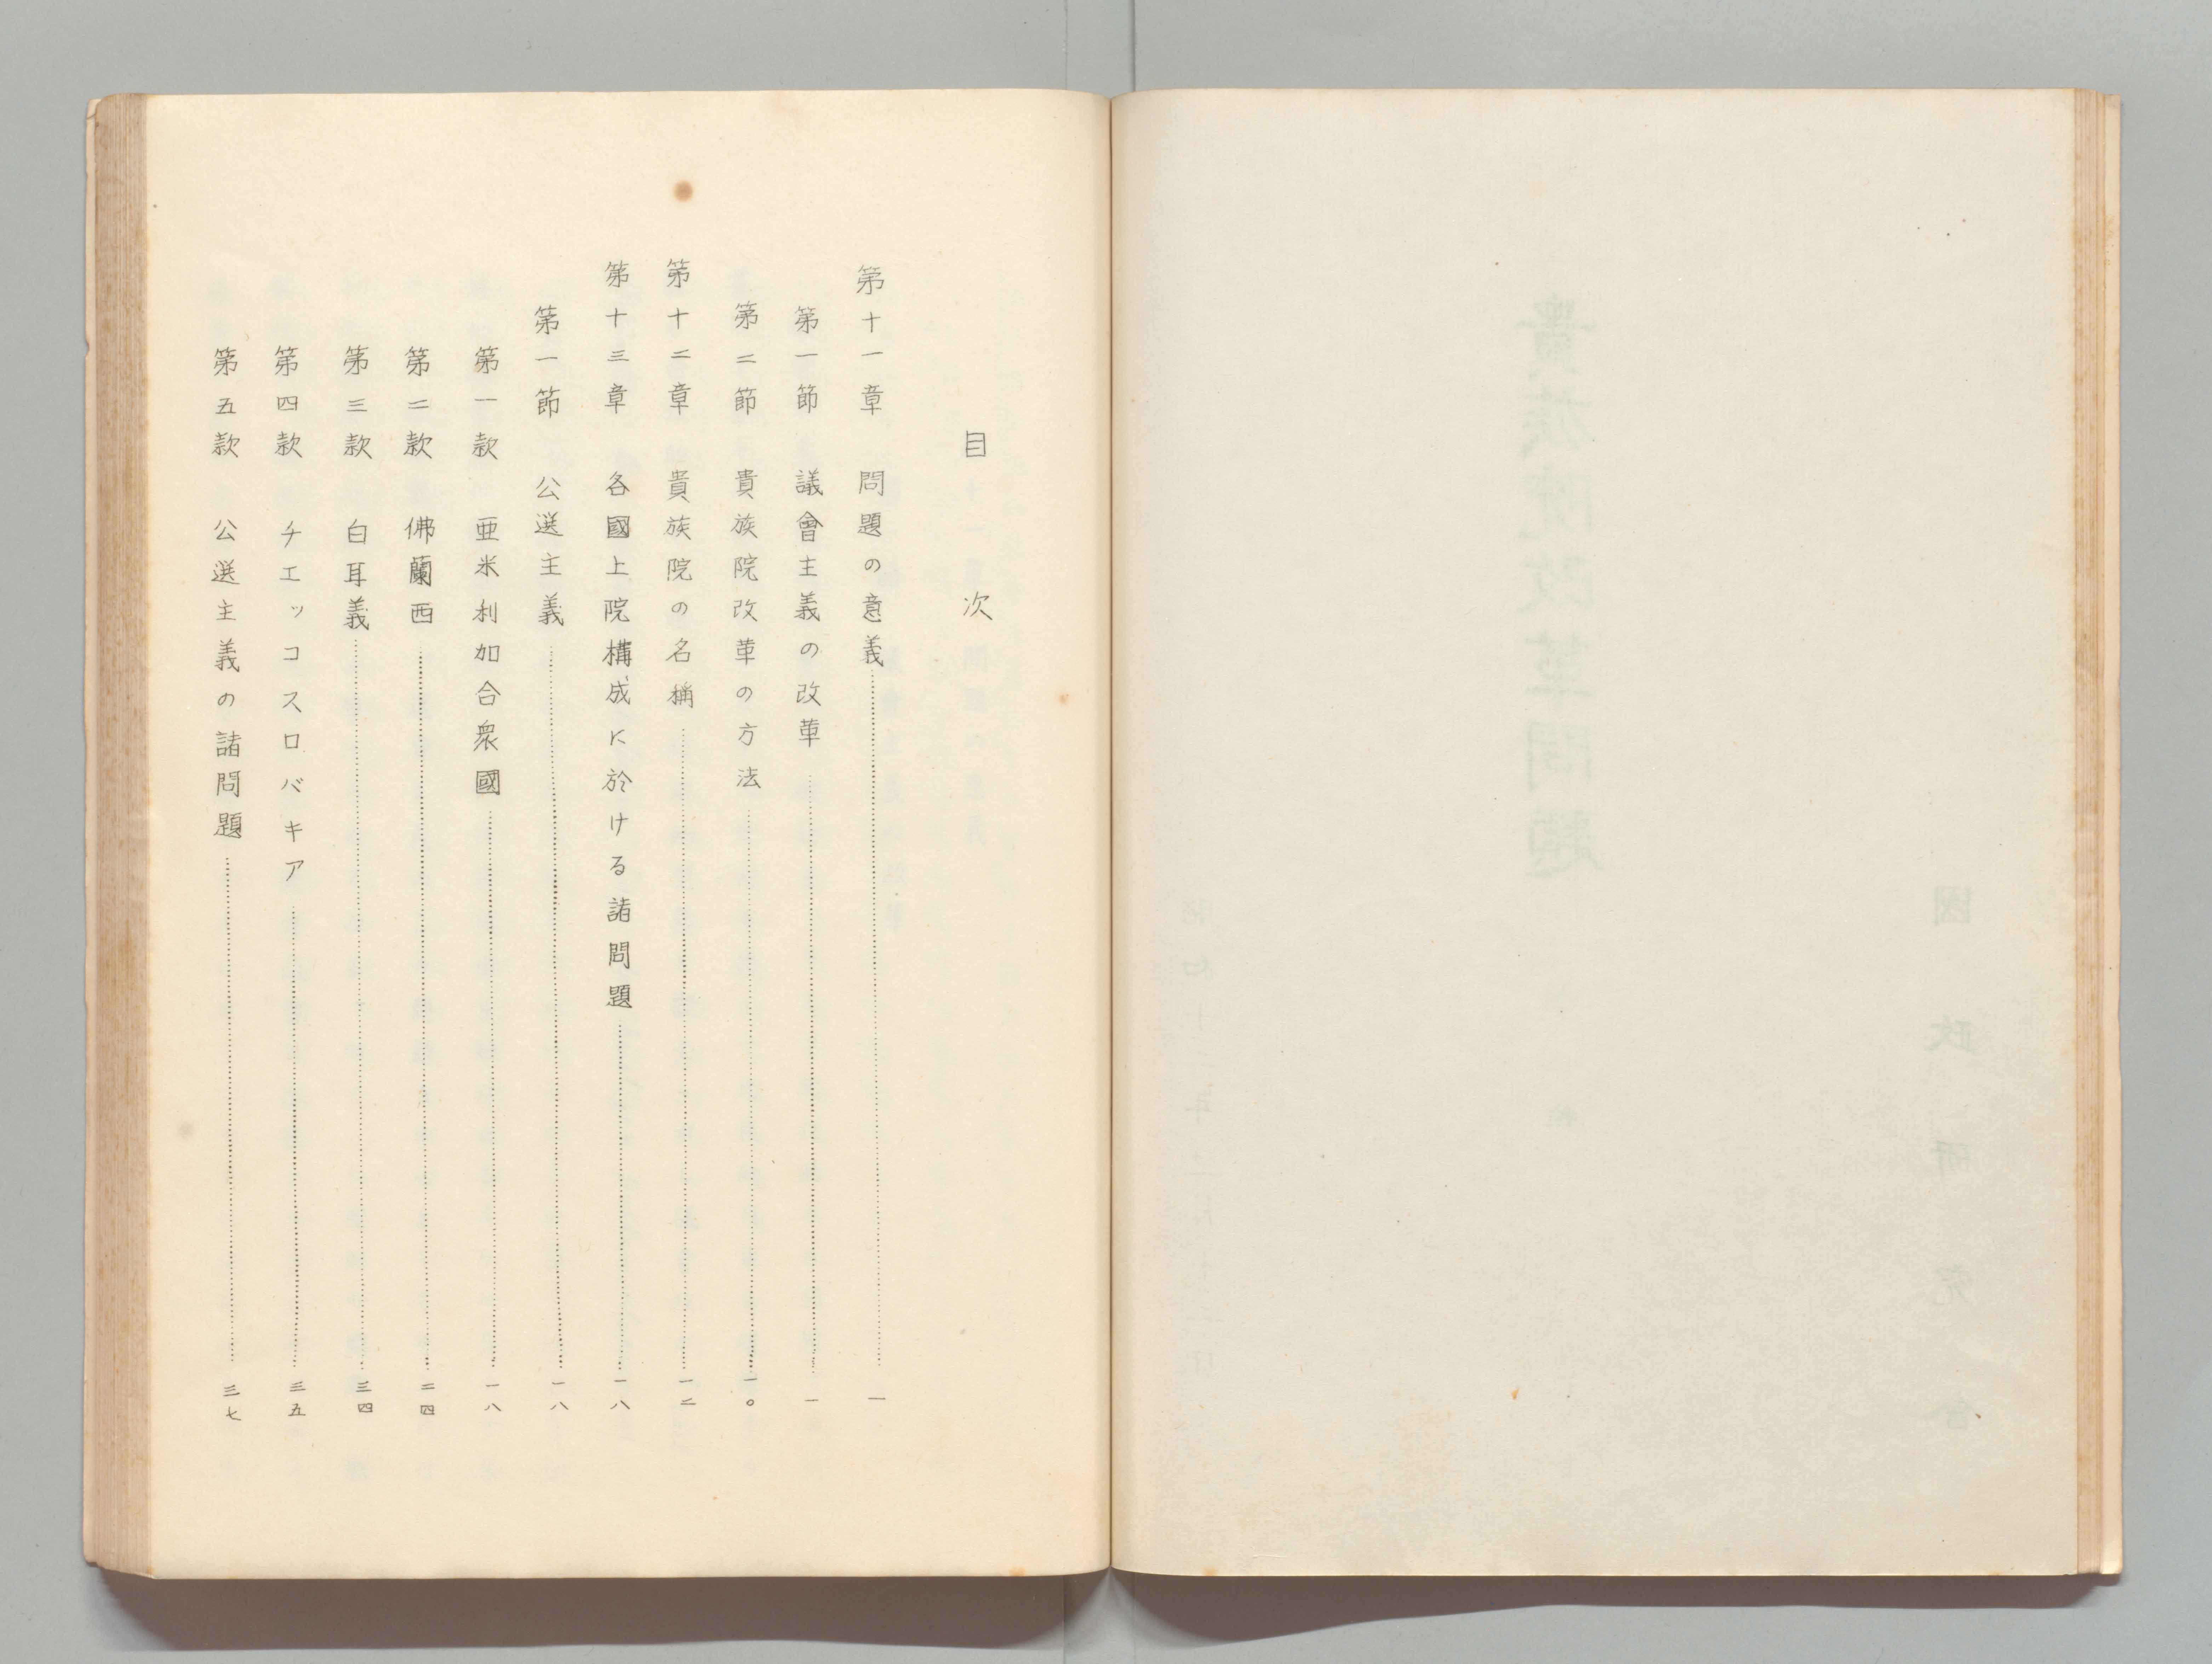 目次
第十一章 問題の意義 一
第一節 議會主義の改革 一
第二節 貴族院改革の方法 一〇
第十二章 貴族院の名稱 一二
第十三章 各國上院構成に於ける諸問題 一八
第一節 公選主義 一八
第一款 亜米利加合衆國 一八
第二款 佛蘭西 二四
第三款 白耳義 三四
第四款 チエッコスロバキア 三五
第五款 公選主義の諸問題 三七